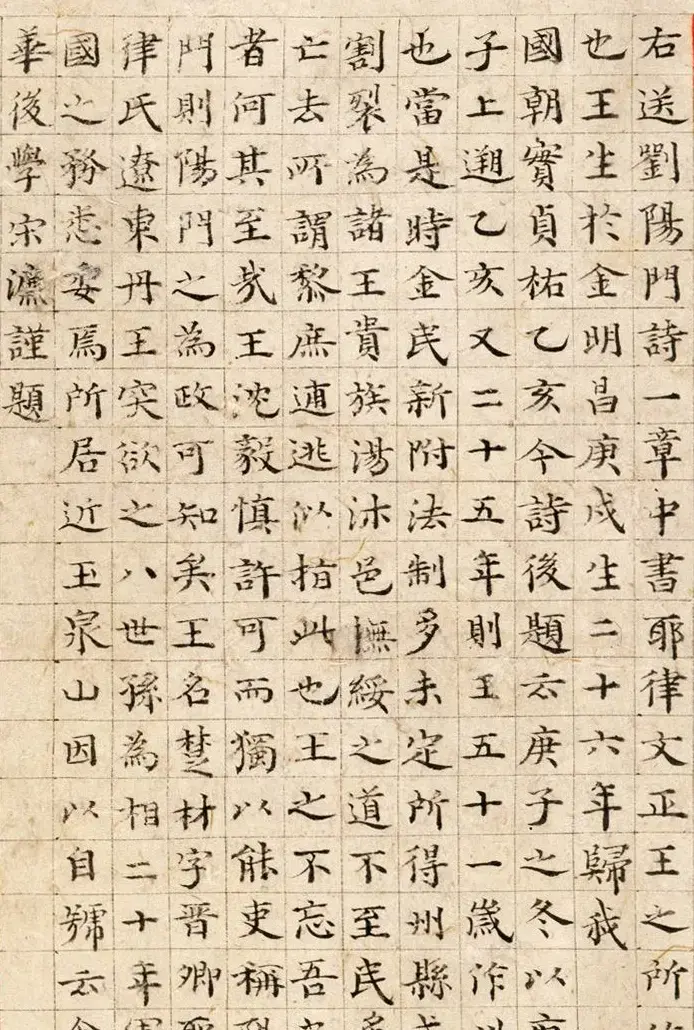 右送劉陽門詩一章中書耶律文正王之所
也王生於金明昌庚戌生二十六年歸我
國朝實貞祐乙亥今詩後題云庚子之冬以
子上遡乙亥又二十五年則王五十一歲作
也當是時金民新附法制多未定所得州縣
割裂為諸王貴族湯沐邑撫綏之道不至民
亡去所謂黎庶逋逃似指此也王之不忘吾
者何其至哉王沈毅慎許可而獨以能吏稱
門則陽門之為政可知矣王名楚材字晉卿
律氏遼東丹王突欲之八世孫為相二十年
國之務悉委焉所居近玉泉山因以自號云
華後學宋濂謹題